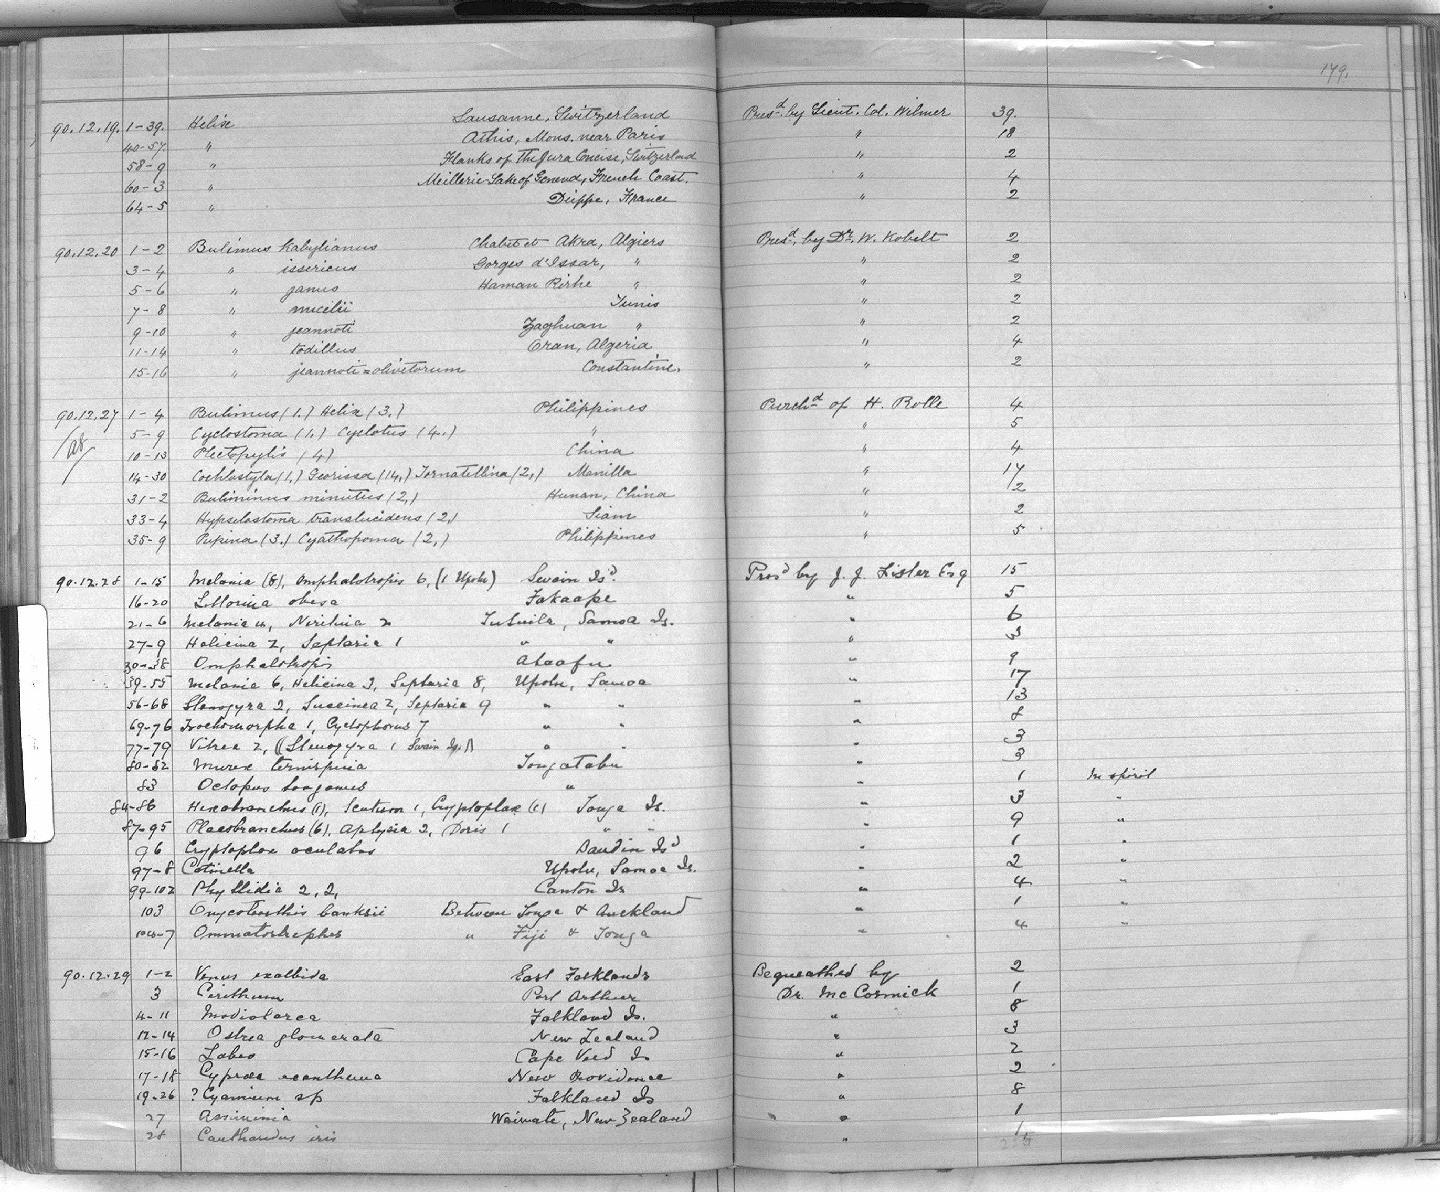 179.
90.12.19. 1-39. Helix Lausanne, Switzerland Presd. by Lieut. Col. Wilmer 39.
40-57. " Athis, Mons. near Paris " 18
58-9 " Flanks of the Jura Concise, Switzerland " 2
60-3 " Meillerie-Lake of Geneva, French Coast. " 4
64-5 " Dieppe, France " 2
90.12.20 1-2 Bulimus kabylianus Chabet et Akra, Algiers Presd. by Dr. W. Kobelt 2
3-4 " issericus Gorges d'Issar, " " 2
5-6 " janus Haman Rirhe " " 2
7-8 " Tunis " 2
9-10 " jeannoti Zaghuan " " 2
11-14 " todillus Oran, Algeria " 4
15-16 " jeannoti=olivetorum Constantine. " 2
90.12.27 1-4 Bulimus (1.) Helix (3.) Philippines Purchd of H. Rolle 4
5-9 Cyclostoma (1.) Cyclotus (4.) " " 5
10-13 Plectopylis (4) China " 4
14-30 Cochlostyla (1,) Georissa (14,) Tornatellina (2,) Manilla " 17
31-2 Buliminus minutus (2,) Hunan, China " 2
33-4 Hypselostoma translucidens (2,) Siam " 2
35-9 Pupina (3.) Cyathopoma (2,) Philippines " 5
90.12.28 1-15 Melania (8), Omphalotropis 6, (1 Upolu) Swain Isd. Presd by J. J. Lister Esq 15
16-20 Littorina obesa Fakaape " 5
21-6 Melania 4, Neritina 2 Tutuila, Samoa Is. " 6
27-9 Helicina 2, Septaria 1 " " " 3
30-38 Omphalotropis Ataafu " 9
39-55 Melania 6, Helicina 3, Septaria 8, Upolu, Samoa " 17
56-68 Stenogyra 2, Succinea 2, Septaria 9 " " " 13
69-76 Trochomorpha 1, Cyclophorus 7 " " " 8
77-79 Vitrea 2, (Stenogyra 1 Swain Is.) " " " 3
80-82 Murex ternispina Tongatabu " 3
83 Octopus tonganus " " 1 In spirit
84-86 Hexabranchus (1), Scutum 1, Cryptoplax (1) Tonga Is. " 3 "
87-95 Placobranchus (6), Aplysia 2, Doris 1 " " " 9 "
96 Cryptoplax oculatus Dandin Isd " 1 "
97-8 Upolu, Samoa Is. " 2 "
99-102 Phyllidia 2, 2, Canton Is " 4 "
103 Onycoteuthis banksii Between Tonga & Auckland " 1 "
104-7 Ommatostrephes " Fiji & Tonga " 4 "
90.12.29 1-2 Venus exalbida East Falklands Bequeathed by 2
3 Cerithium Port Arthur Dr. McCormick 1
4-11 Modiolarca Falkland Is. " 8
12-14 Ostrea glomerata New Zealand " 3
15-16 Cape Verd Is " 2
17-18 Cypraea exanthema New Providence " 2
19-26 ? Cyamium sp Falkland Is " 8
27 Assiminia Waimate, New Zealand " 1
28 Cantharidus iris " 1